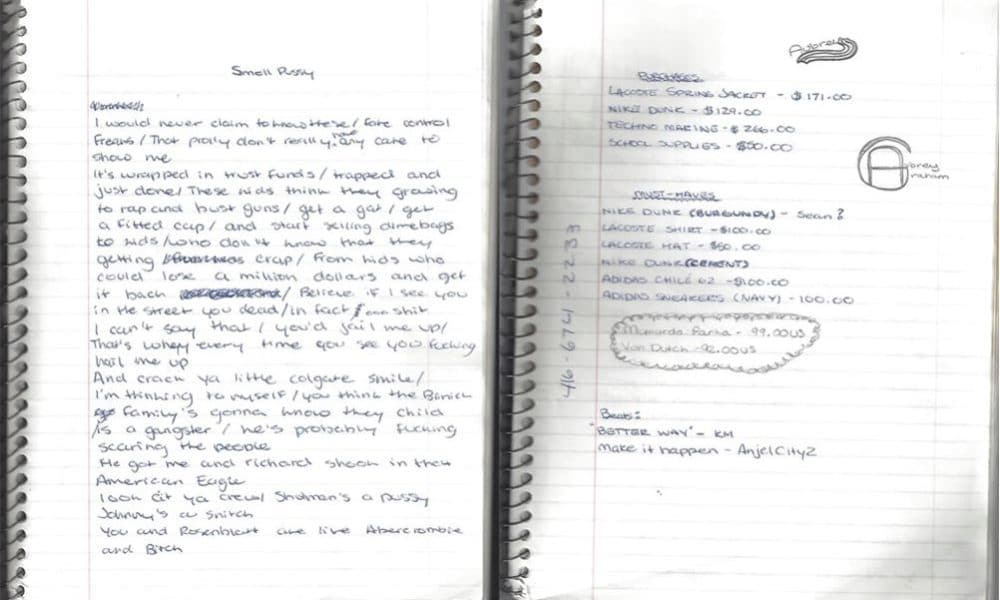 Small Pussy
I would never claim to know these/ fate control
Freaks/ That prolly don't really have any care to
show me
It's wrapped in trust funds/ trapped and
just done/ These kids think they growing
to rap and bust guns/ get a gat/ get
a fitted cap/ and start selling dimebags
to kids/who don't know that they
getting crap/ From kids who
could lose a million dollars and get
it back / Believe if I see you
in the street you dead/in fact/ shit
I can't say that/ you'd jail me up/
That's every time you see you fucking
hail me up
And crack ya little colgate smile/
I'm thinking to myself/ you think the
family's gonna know they child
is a gangster/ he's probably fucking
scaring the people
He got me and richard shook in they
American Eagle
look at ya crew/ Shulman's a pussy
Johnny's a snitch
You and Rosenblatt are like Abercrombie
and Bitch
Aubrey
PURCHASES
LACOSTE SPRING JACKET - $171.00
NIKE DUNK - $129.00
TECHNO MARINE - $266.00
SCHOOL SUPPLIES - $50.00
Aubrey
Graham
MUST-HAVES
NIKE DUNK (BURGUNDY) - Sean?
LACOSTE SHIRT - $100.00
LACOSTE HAT - $50.00
NIKE DUNK (CEMENT)
ADIDAS CHILE 62 - $100.00
ADIDAS SNEAKERS (NAVY) - 100.00
Parka - 99.00US
Von Dutch - 92.00US
416-674-2233
Beats:
"BETTER WAY" - KM
Make it happen - AnjelCity2